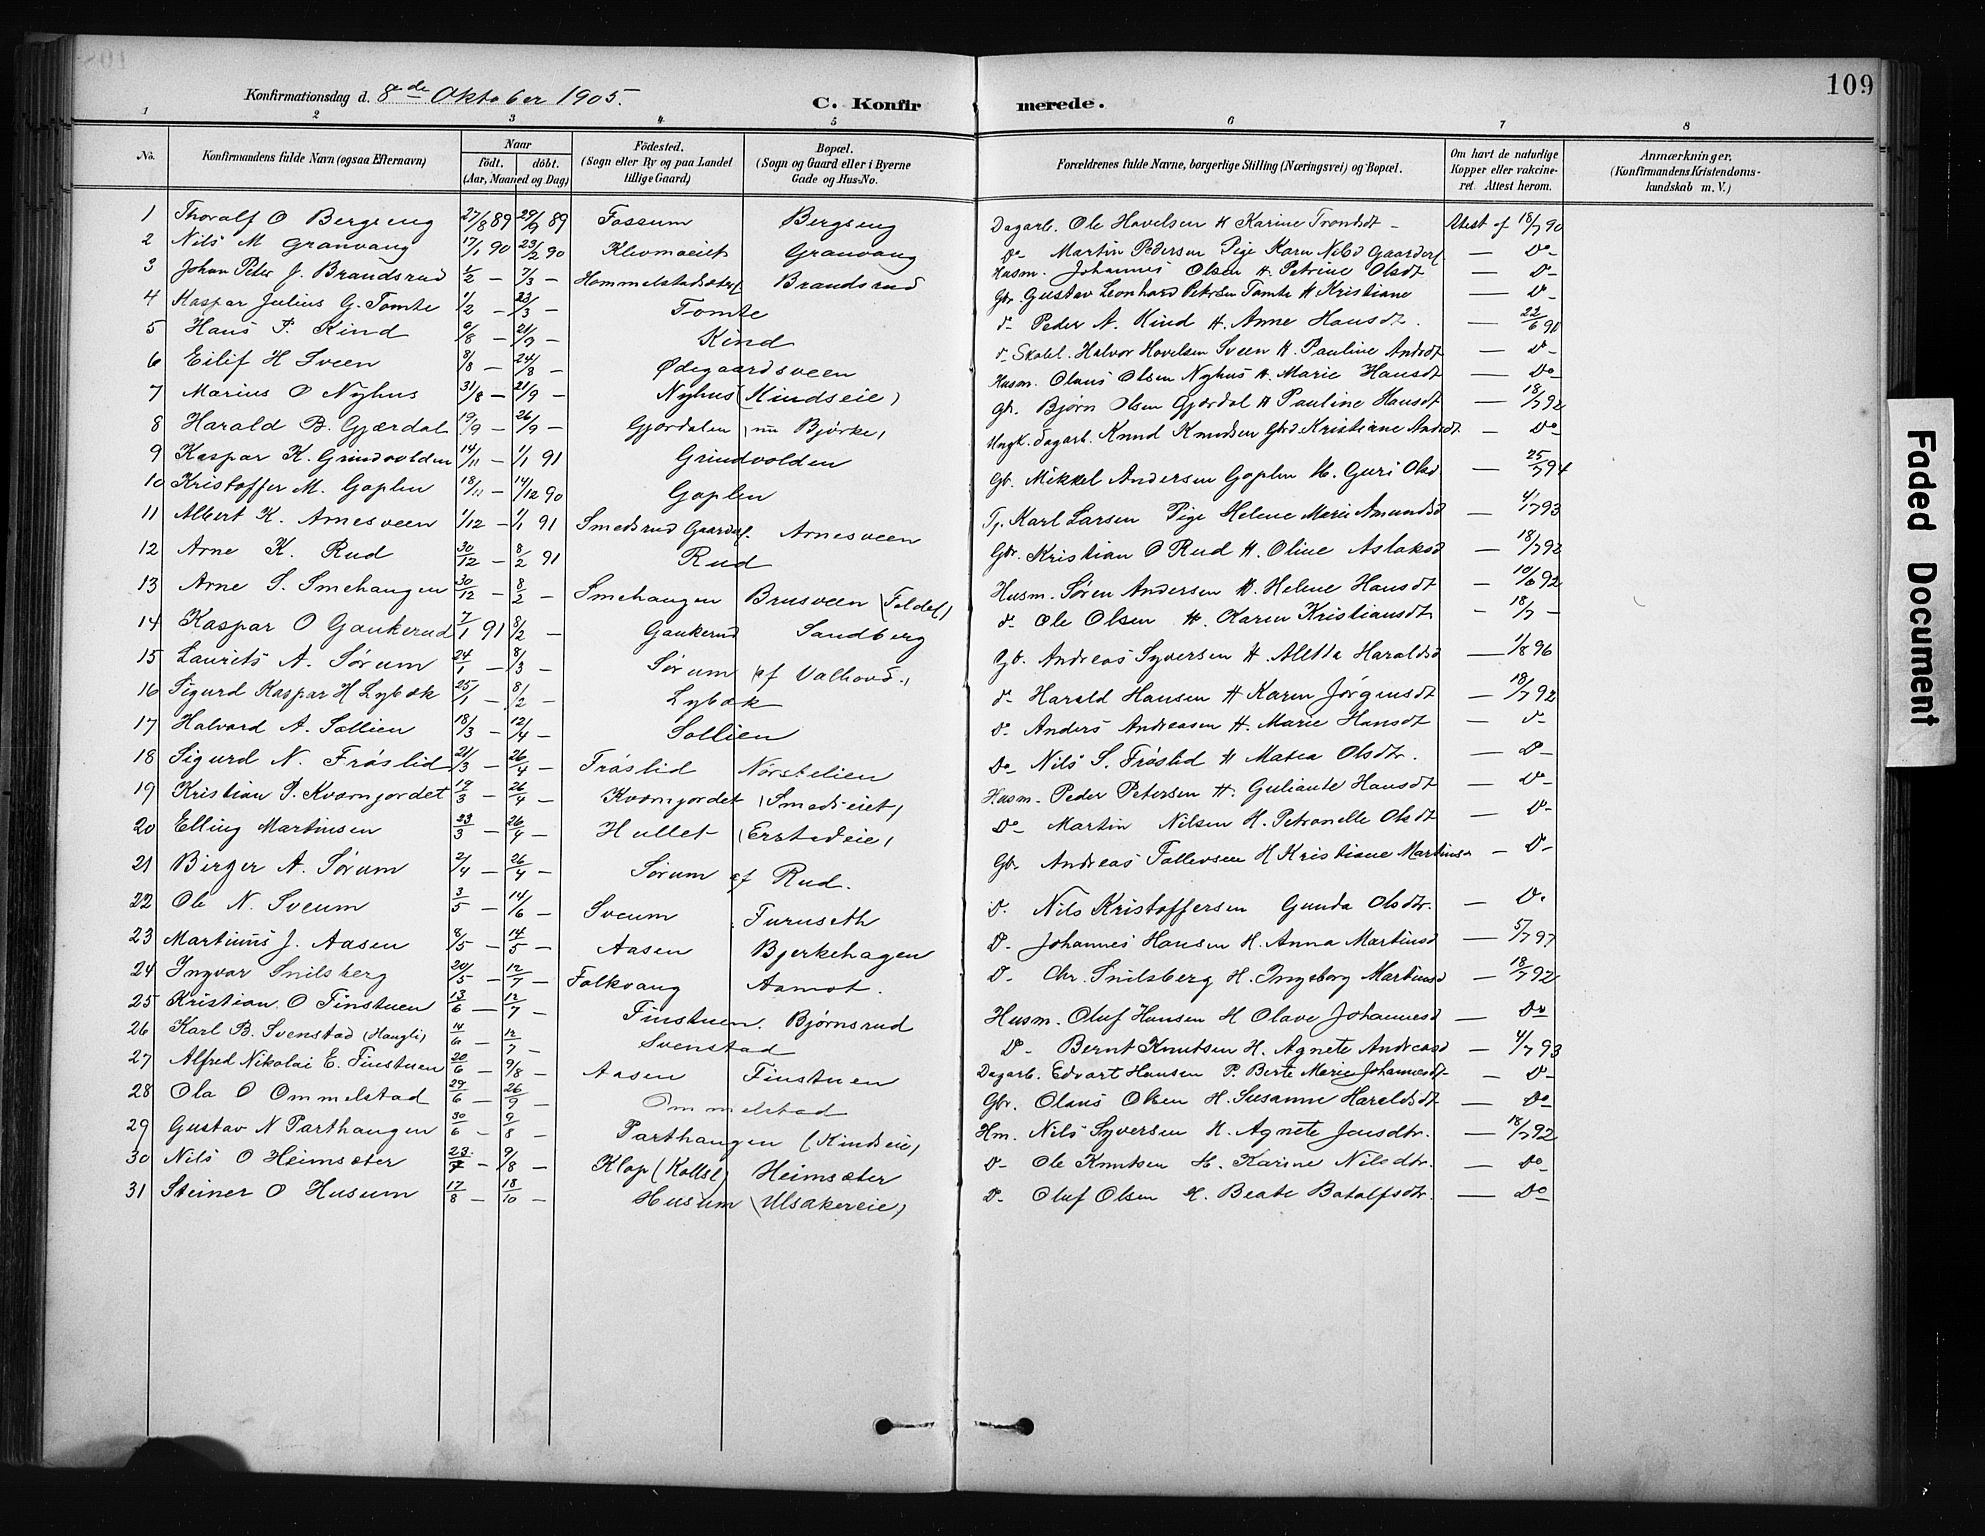 109
Konfirmationsdag d. 8de Oktober 1905.
C. Konfirmerede.
1 2 3 4 5 6 7 8
No. Konfirmandens fulde Navn (ogsaa Efternavn) Naar födt. döbt. (Aar, Maaned og Dag) Födested. (Sogn eller By og paa Landet tillige Gaard) Bopæl. (Sogn og Gaard eller i Byerne Gade og Hus-No. Forældrenes fulde Navne, borgerlige Stilling (Næringsvei) og Bopæl. Om havt de naturlige Kopper eller vakcineret. Attest herom. Anmærkninger. (Konfirmandens Kristendomskundskab m. V.)
1 Thoralf O Bergseng 27/8 89 29/9 89 Fossum Bergseng Dagarb. Ole Hovelsen H Karine Trondsdt - Attest af 18/7 90
2 Nils M Granvang 17/1 90 23/2 90 Klevmoeiet Granvang Do Martin Pedersen Pige Karen Nilsd Gaarder — Do
3 Johan Peter J. Brandsrud 1/2 — 7/3 — Hommelstadsæter Brandsrud Husm. Johannes Olsen H. Petrine Olsdt — D-
4 Kaspar Julius G. Tomte 1/2 — 23/3 — Tomte Gbr. Gustav Leonhard Petersen Tomte H Kristiane — D-
5 Hans P. Kind 9/8 — 21/9 — Kind d- Peder A. Kind H. Anne Hansdt. — 22/6 91
6 Eilif H Sveen 8/8 — 24/8 — Ødegaardsveen d- Skolel. Halvor Hovelsen Sveen H. Pauline Andrdt — D-
7 Marius O Nyhus 31/8 — 21/9 — Nyhus (Kindseie) Husm. Olaus Olsen Nyhus H. Marie Hansdt — Do
8 Harald B. Gjærdal 19/9 — 26/9 — Gjørdalen (nu Bjørke) Gb. Bjørn Olsen Gjærdal H Pauline Hansdt — 18/7 92
9 Kaspar K. Grindvolden 14/11 — 1/1 91 Grindvolden Ungk. dagarb. Knud Knudsen Gbrd. Kristiane Andrdt — Do
10 Kristoffer M. Goplen 18/11 — 14/12 90 Goplen Gb. Mikkel Andersen Goplen H. Guri Olsd — 25/7 94
11 Albert K. Arnesveen 1/12 — 1/1 91 Smedsrud Gaarder. Arnesveen Tj. Karl Larsen Pige Helene Marie Amundsd — 4/7 93
12 Arne K. Rud 30/12 — 8/2 91 Rud Gbr. Kristian O Rud H. Oline Aslaksd — 18/7 92
13 Arne S. Smehaugen 30/12 — 8/2 — Smehaugen Brusveen (Foldal) Husm. Søren Andersen H. Helene Hansdt — 10/6 92
14 Kaspar O Gaukerud 7/1 91 8/2 — Gaukerud Sandberg d- Ole Olsen H. Karen Kristiansdt — 18/7 —
15 Laurits A. Sørum 24/1 — 8/3 — Sørum (af Valhovd.) Gb. Andreas Syversen H Aletta Haraldsd — 1/8 96
16 Sigurd Kaspar H Lybæk 25/1 — 8/2 — Lybæk d- Harald Hansen H Karen Jørgensdt — 18/7 92
17 Halvard A. Sollien 18/3 — 12/4 — Sollien Do Anders Andreasen H. Marie Hansdt — D-
18 Sigurd N. Frøslid 21/3 — 26/4 — Frøslid Nørstelien Do Nils S. Frøslid H Matea Olsdtr. — D-
19 Kristian P. Kværnjordet 19/3 — 26/4 — Kværnjordet (Smedseiet) Husm. Peder Petersen H. Guliante Hansdt — Do
20 Elling Martinsen 23/3 — 26/4 — Hullet (Erstadeie) Do Martin Nilsen H. Petronelle Olsdt — D-
21 Birger A. Sørum 2/4 — 26/4 — Sørum af Rud. Gbr. Andreas Tollevsen H Kristiane Martinsen — D-
22 Ole N. Sveum 3/5 — 14/6 — Sveum Furuseth D. Nils Kristoffersen Gunda Olsdtr. — D.
23 Martinus J. Aasen 8/5 — 14/5 — Aasen Bjerkehagen D- Johannes Hansen H. Anna Martinsd — 5/7 97
24 Ingvar Snilsberg 20/5 — 12/7 — Folkvang Aamot. D- Chr. Snilsberg H. Ingeborg Martinsd — 18/7 92
25 Kristian O Finstuen 13/6 — 12/7 — Finstuen. Bjørnsrud Husm. Oluf Hansen H Olave Johannesd — Do
26 Karl B. Svenstad (Haugli) 14/6 — 12/7 — Svenstad D- Bernt Knutsen H. Agnete Andreasd — 4/7 93
27 Alfred Nikolai E. Finstuen 20/6 — 9/8 — Aasen Finstuen Dagarb. Edvart Hansen P. Berte Marie Johannesdt — D-
28 Ola O Ommelstad 29/6 — 26/9 — Ommelstad Gbr. Olaus Olsen H. Susanne Haraldsdt — Do
29 Gustav N Parthaugen 30/6 — 9/8 — Parthaugen (Kindseie) Hm. Nils Syversen H. Agnete Jensdtr. — 18/7 92
30 Nils O Heimsæter 23/7 — 9/8 — Klop (Kolbsl) Heimsæter D- Ole Knutsen H. Karine Nilsdtr. — Do
31 Steiner O Husum 17/8 — 18/10 — Husum (Ulsakereie) D- Oluf Olsen H. Beate Botolfsdtr. — Do
Faded Document